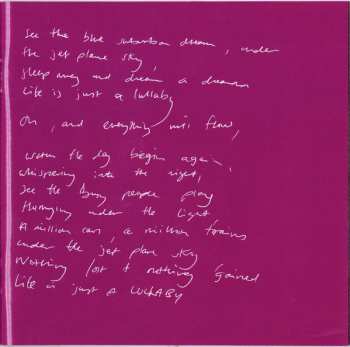 See the blue suburban dream, under
the jet plane sky,
sleep away and dream a dream
Life is just a lullaby
Oh, and everything will flow,
Watch the day begin again,
whispering into the night,
see the busy people play
Hurrying under the light
A million cars, a million trains
under the jet plane sky
Nothing lost & nothing gained
Life is just a LULLABY